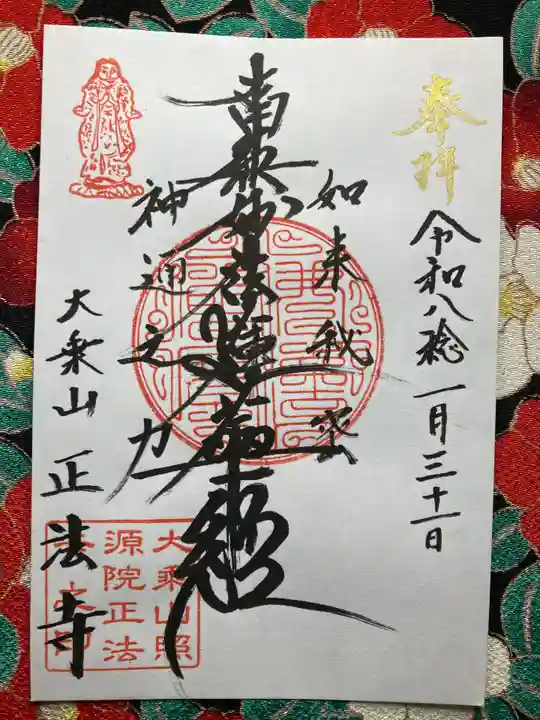 奉拝
令和八稔一月三十一日
如来秘密
南無妙法蓮華経
神通之力
大乗山正法寺
大乗山照
源院正法